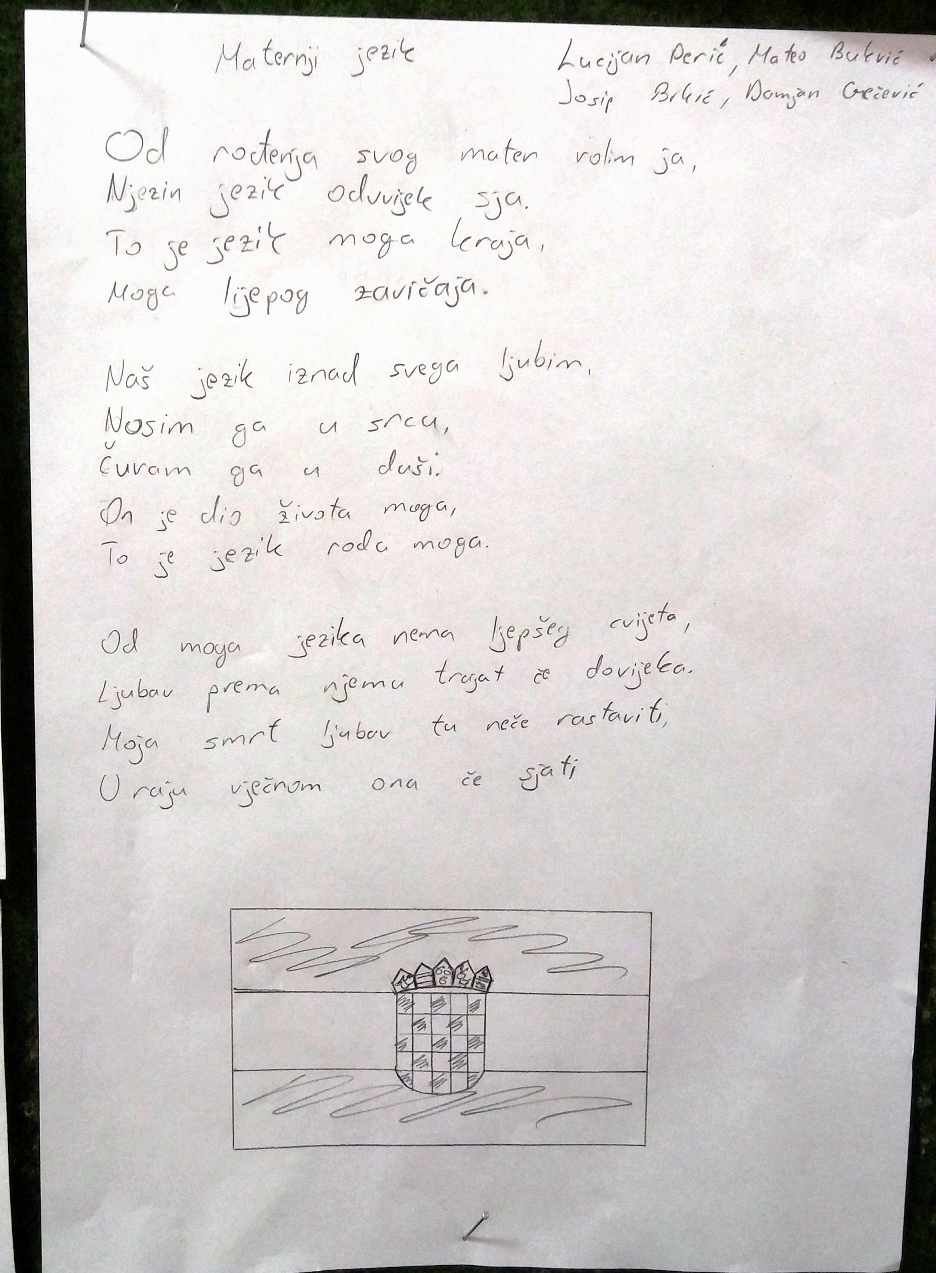 Maternji jezik
Lucijan Perić, Mateo Bukvić
Josip Brkić, Domjan Grečević
Od rođenja svog mater volim ja,
Njezin jezik oduvijek sja.
To je jezik moga kraja,
Moga lijepog zavičaja.
Naš jezik iznad svega ljubim,
Nosim ga u srcu,
Čuvam ga u duši.
On je dio života moga,
To je jezik roda moga.
Od moga jezika nema ljepšeg cvijeta,
Ljubav prema njemu trajat če dovijeka.
Moja smrt ljubav tu neče rastaviti,
U raju vječnom ona če sjati